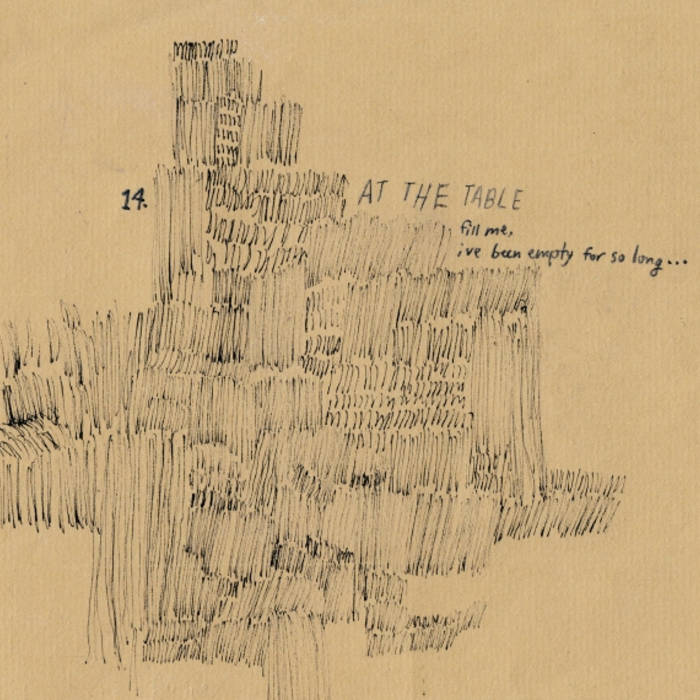 14.
AT THE TABLE
fill me,
i've been empty for so long...